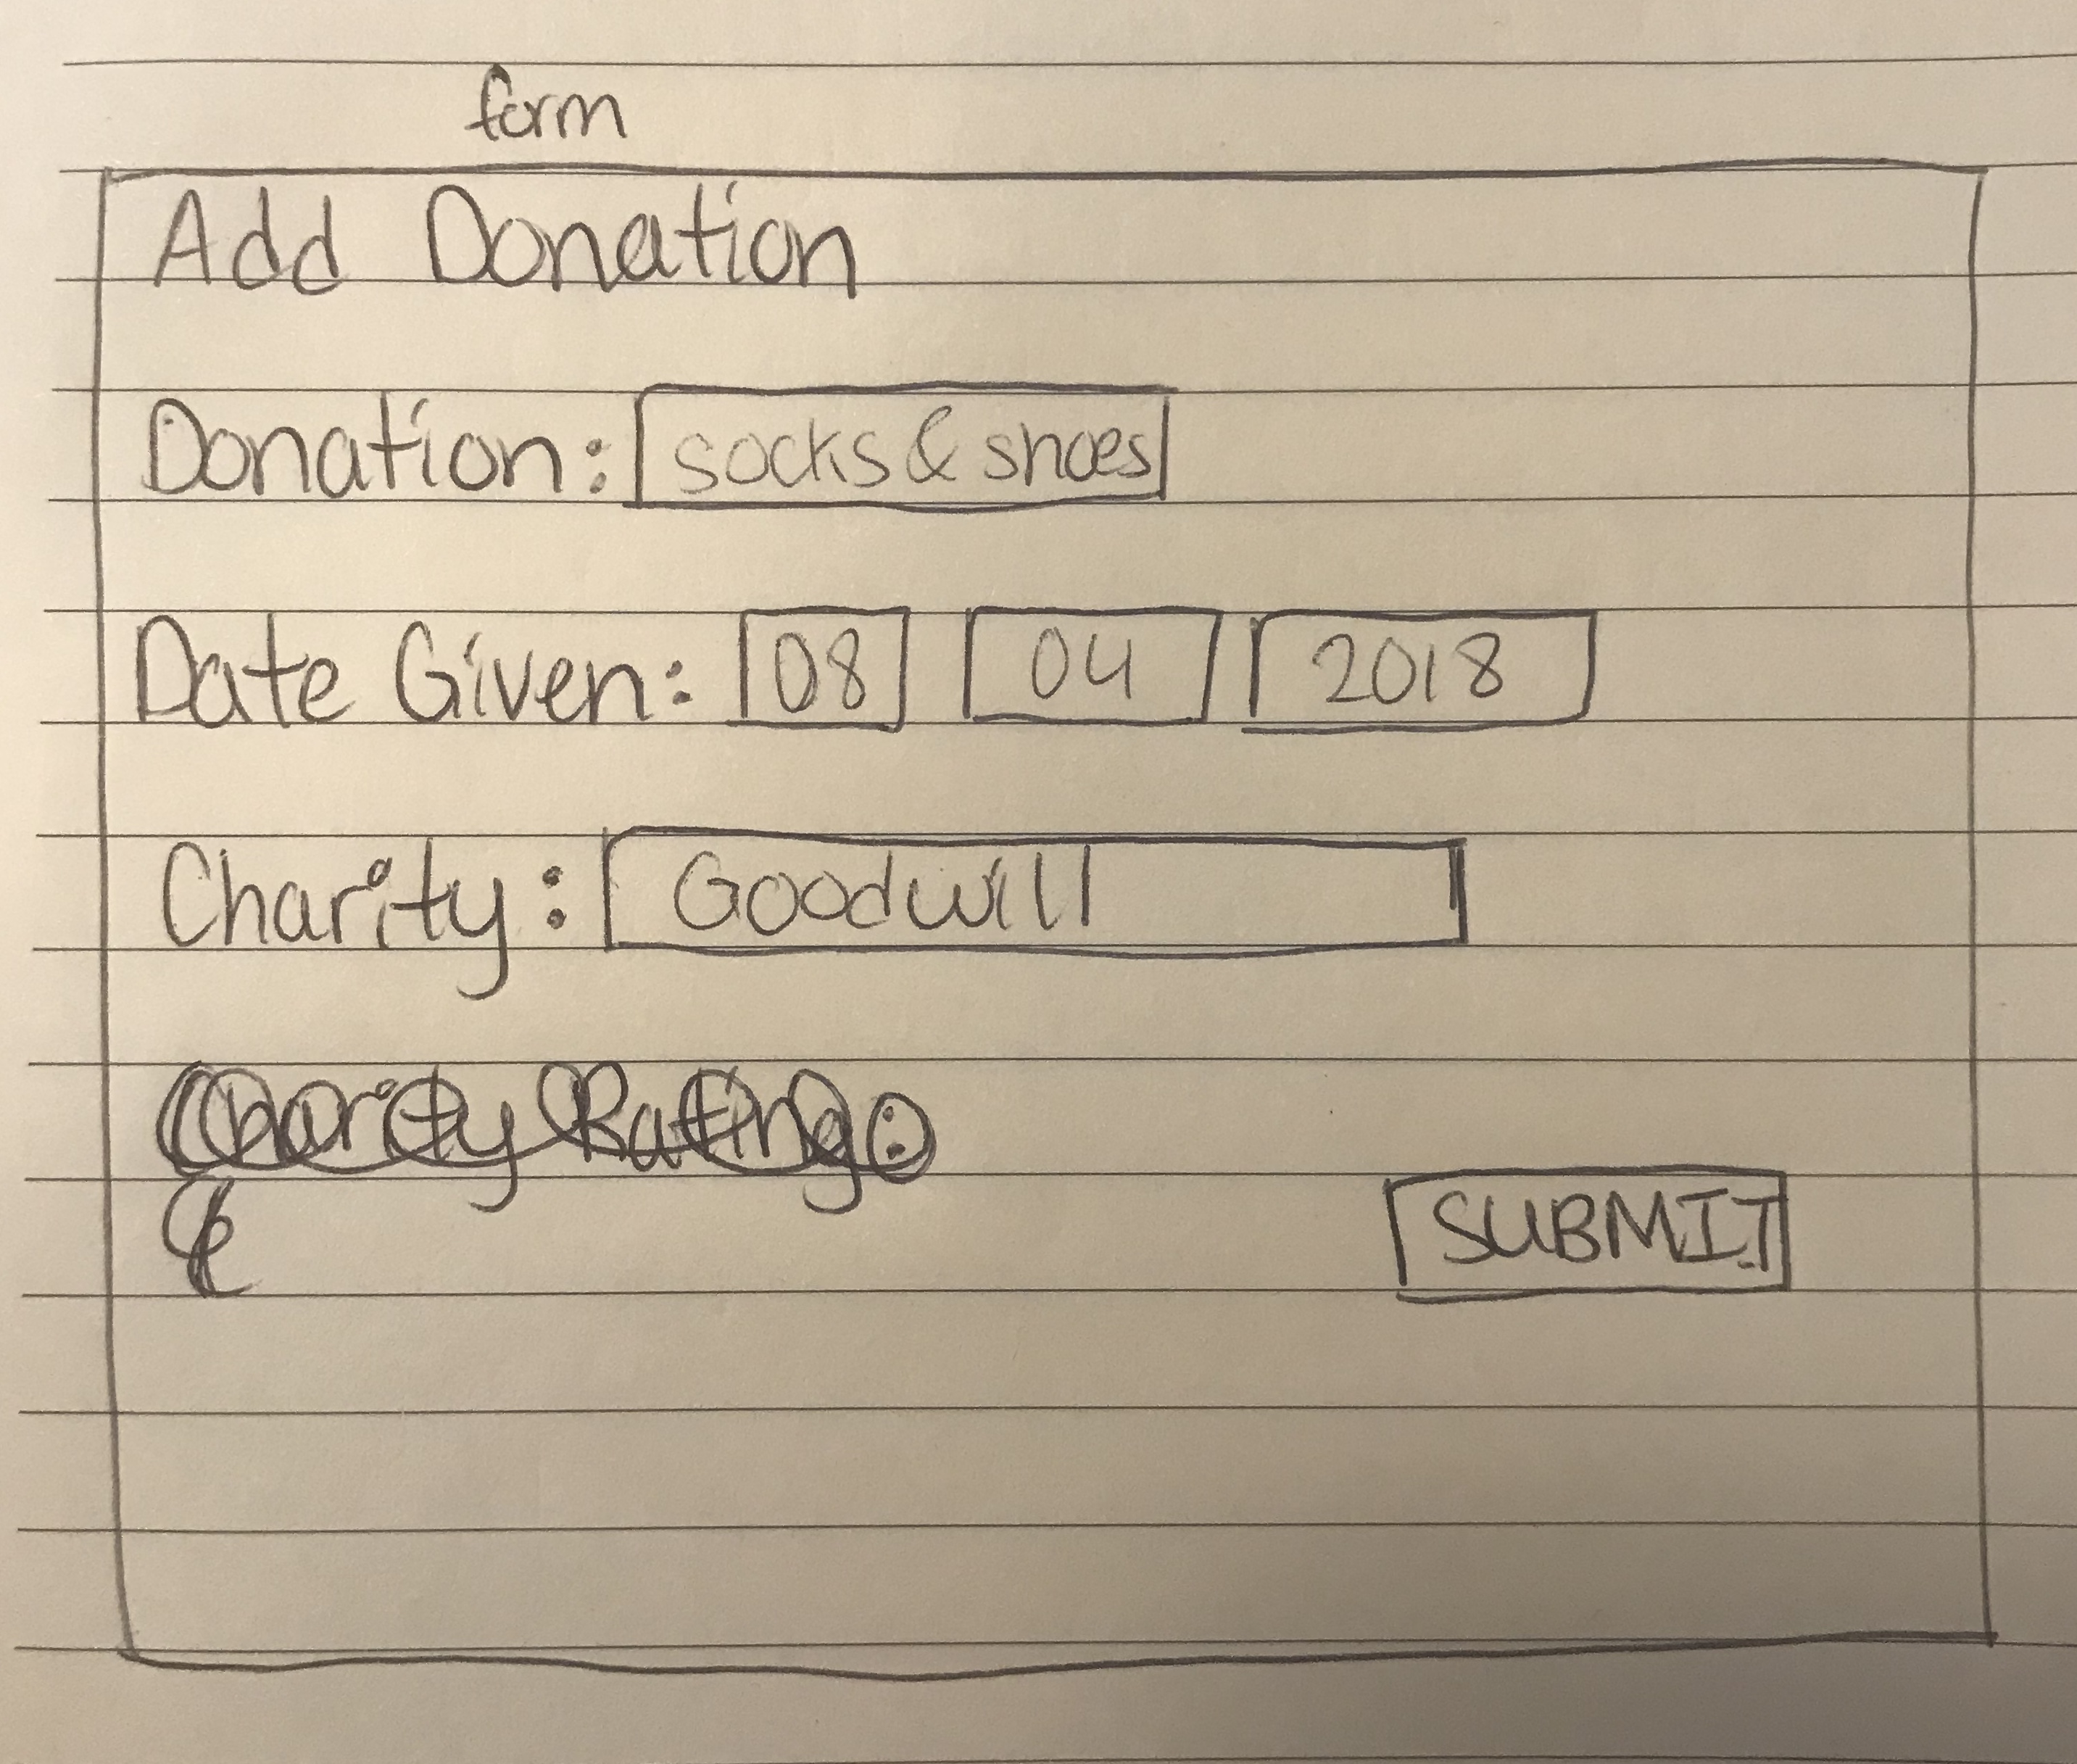 form
Add Donation
Donation: socks & shoes
Date Given: 08 04 2018
Charity: Goodwill
Charity Rating:
SUBMIT